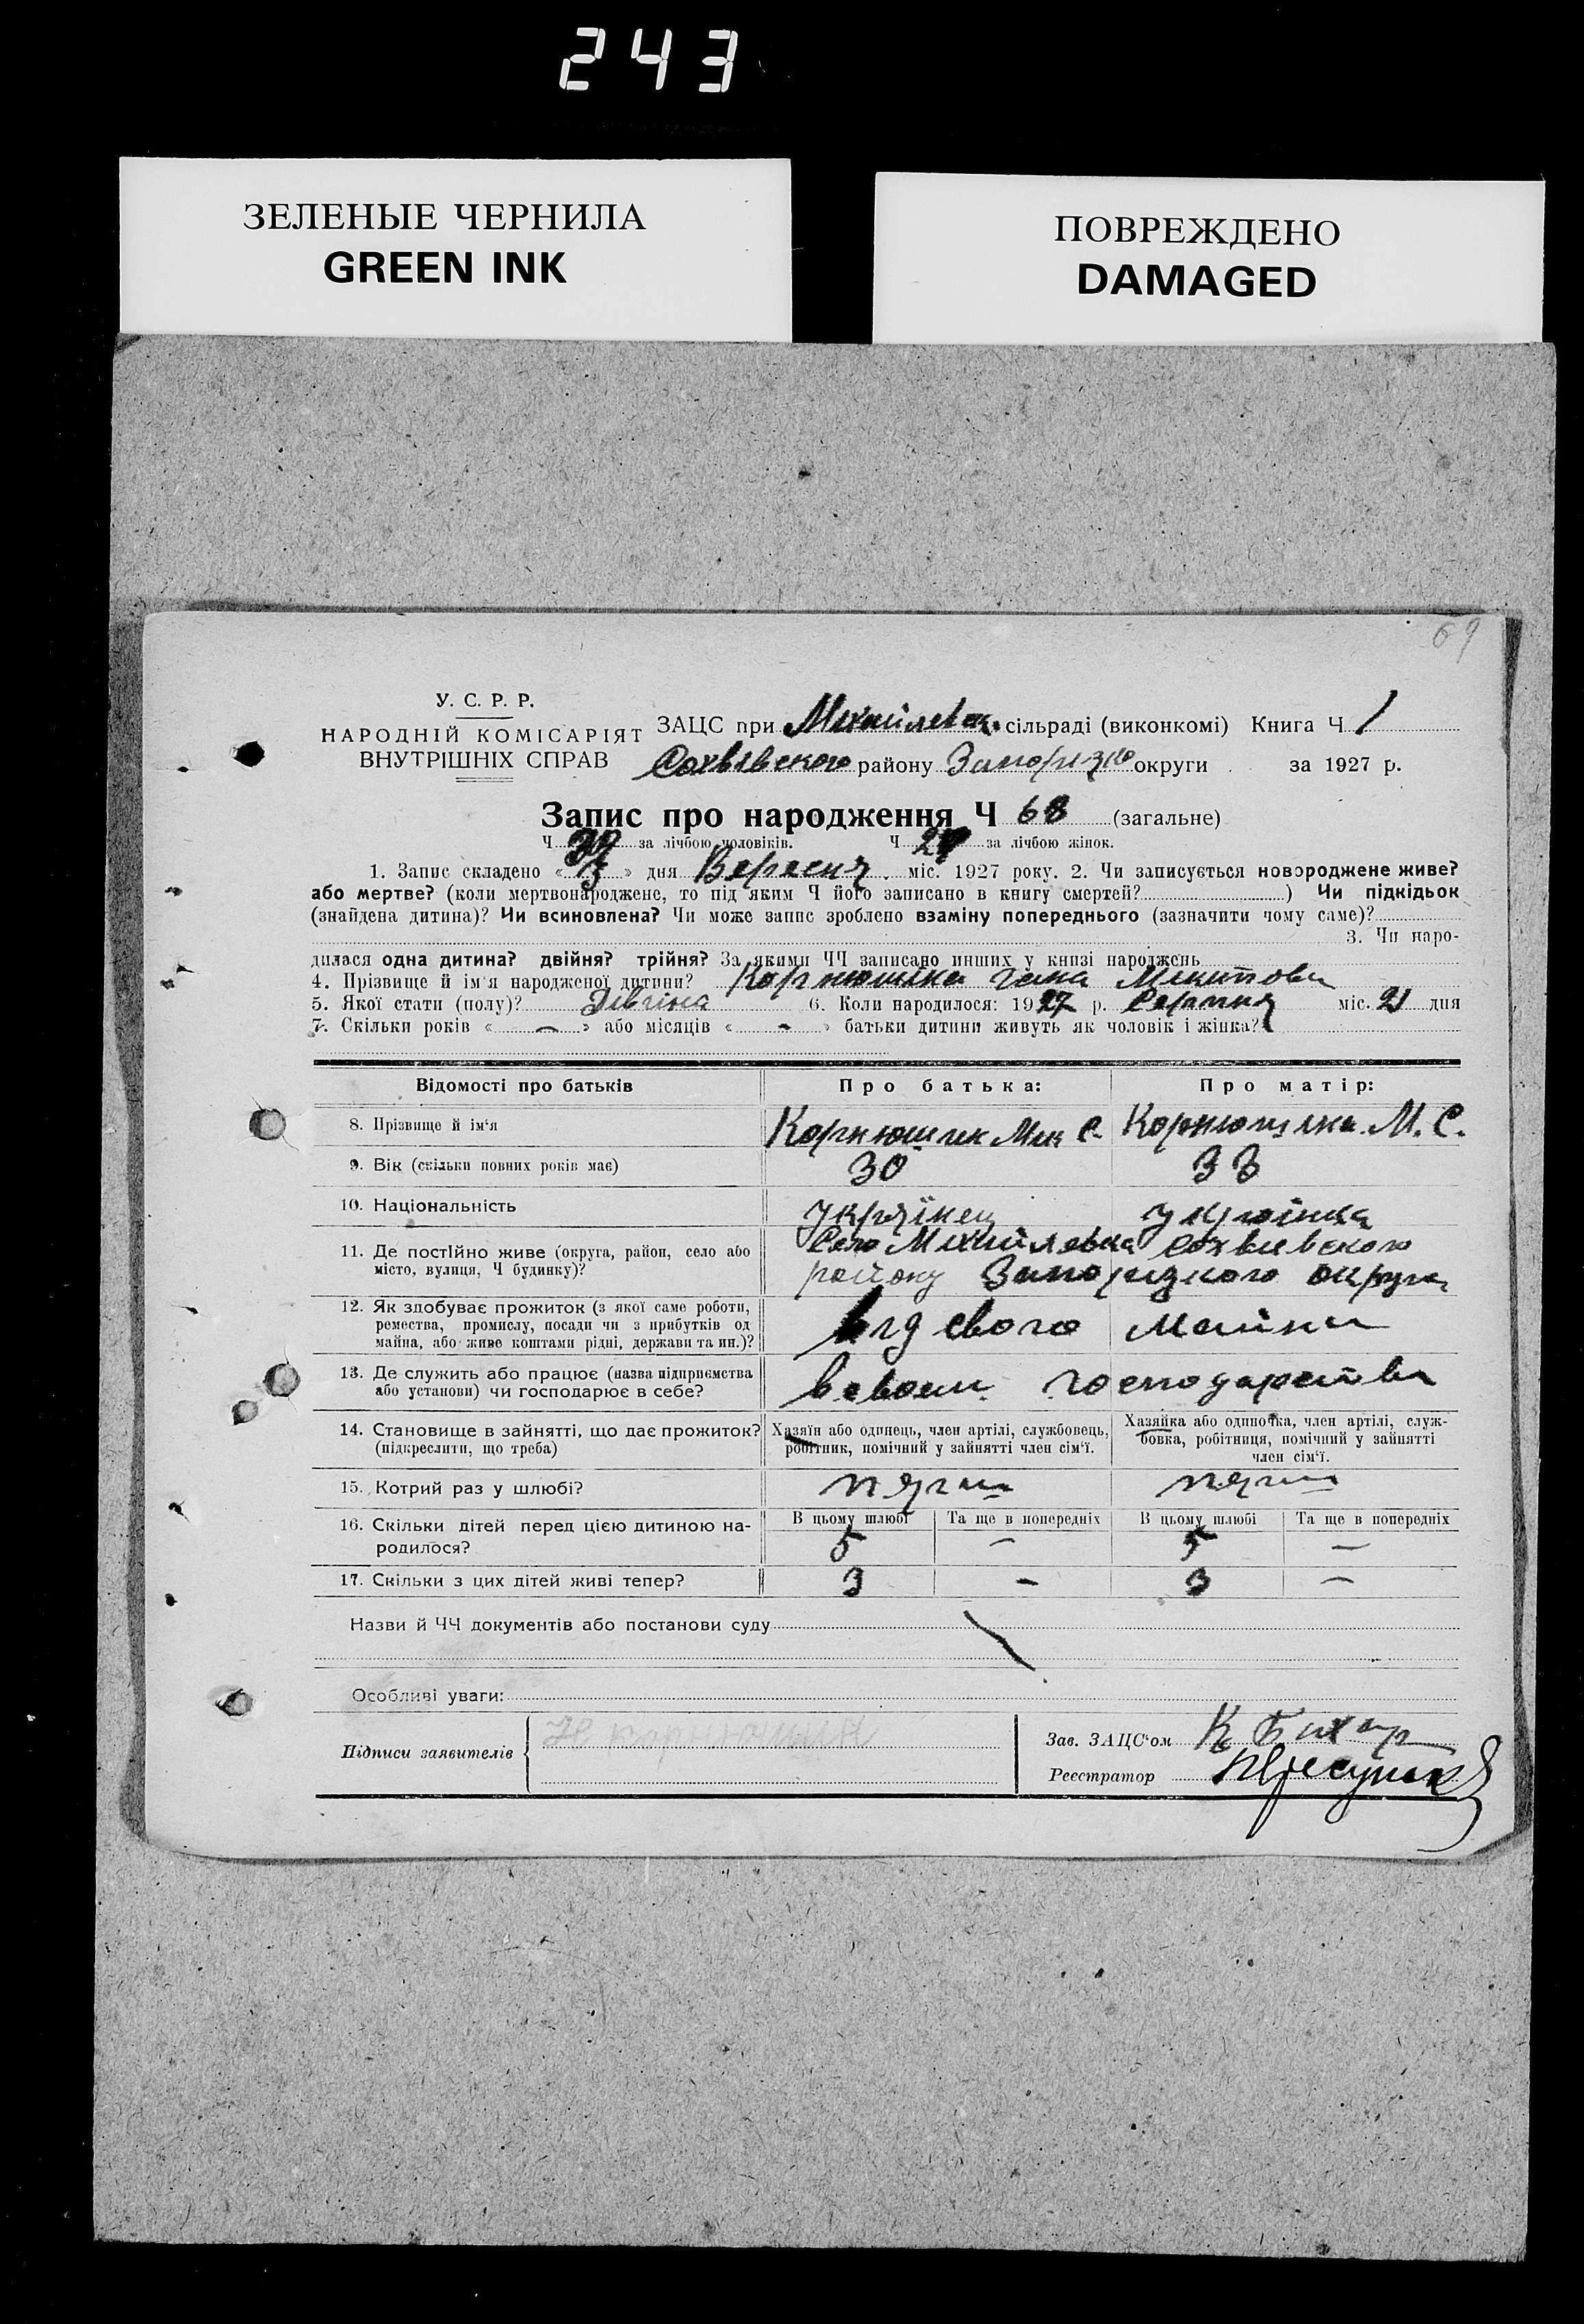 243
ЗЕЛЕНЫЕ ЧЕРНИЛА
GREEN INK
ПОВРЕЖДЕНО
DAMAGED
69
У. С. Р. Р.
НАРОДНІЙ КОМІСАРІЯТ
ВНУТРІШНІХ СПРАВ
ЗАЦС при сільраді (виконкомі) Книга Ч 1
району округи за 1927 р.
Запис про народження Ч 68 (загальне)
Ч за лічбою чоловіків. Ч за лічбою жінок.
1. Запис складено « 3 » дня Вересня міс. 1927 року. 2. Чи записується новороджене живе?
або мертве? (коли мертвонароджене, то під яким Ч його записано в книгу смертей? ) Чи підкідьок
(знайдена дитина)? Чи всиновлена? Чи може запис зроблено взаміну попереднього (зазначити чому саме)?
3. Чи наро-
дилася одна дитина? двійня? трійня? За якими ЧЧ записано инших у книзі народжень
4. Прізвище й ім'я народженої дитини? Микитова
5. Якої стати (полу)? Дівчина 6. Коли народилося: 1927 р. Серпня міс. 21 дня
7. Скільки років « – » або місяців « - » батьки дитини живуть як чоловік і жінка?
Відомості про батьків Про батька: Про матір:
8. Прізвище й ім'я Корнюшик Мик С. М. С.
9. Вік (скільки повних років має) 30 33
10. Національність Українец Українка
11. Де постійно живе (округа, район, село або Село Михайлевка
місто, вулиця, Ч будинку)? району Запорізкого округа
12. Як здобуває прожиток (з якої саме роботи,
ремества, промислу, посади чи з прибутків од від свого майна
майна, або живе коштами рідні, держави та ин.)?
13. Де служить або працює (назва підприємства
або установи) чи господарює в себе? в своем господарстві
14. Становище в зайнятті, що дає прожиток? Хазяїн або одинець, член артілі, службовець, Хазяйка або одиночка, член артілі, служ-
(підкреслити, що треба) робітник, помічний у зайнятті член сім'ї. бовка, робітниця, помічний у зайнятті
член сім'ї.
15. Котрий раз у шлюбі?
16. Скільки дітей перед цією дитиною на- В цьому шлюбі Та ще в попередніх В цьому шлюбі Та ще в попередніх
родилося? 5 – 5 –
17. Скільки з цих дітей живі тепер? 3 – 3 –
Назви й ЧЧ документів або постанови суду
Особливі уваги:
Підписи заявителів
Зав. ЗАЦС'ом
Реєстратор